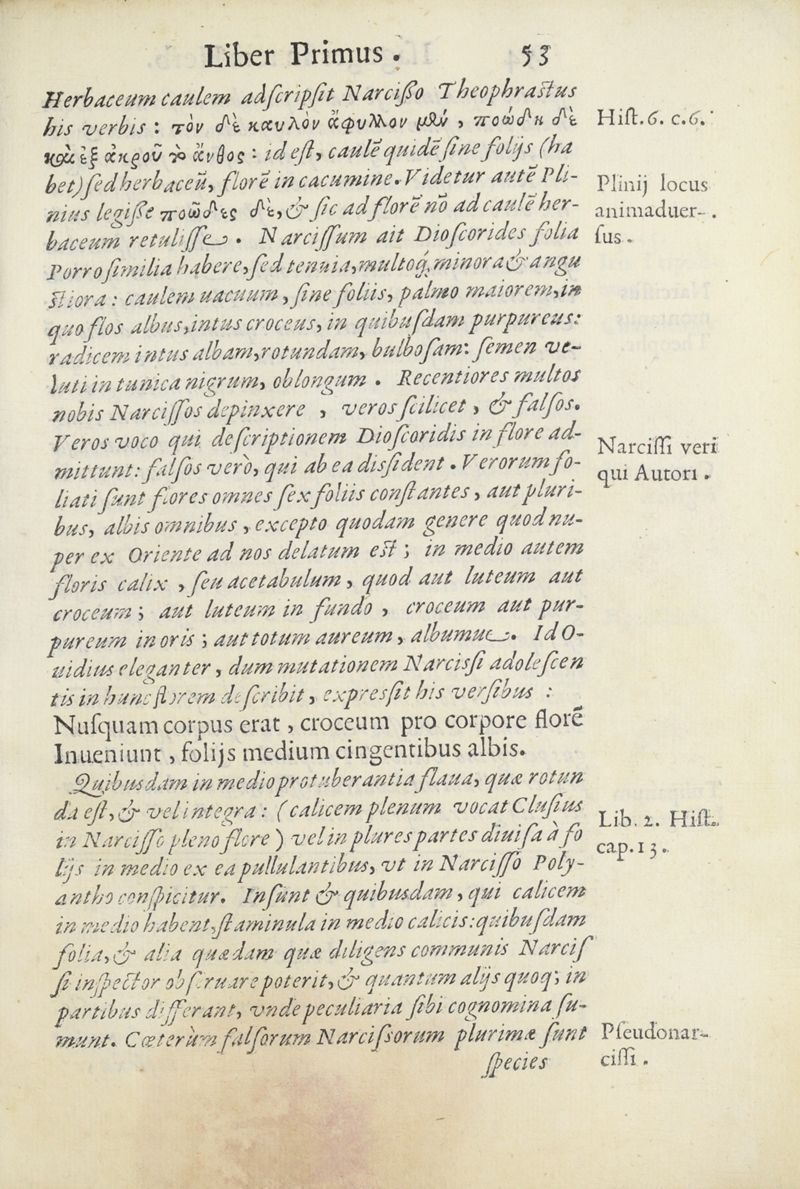 Liber Primus. 53
Herbaceum caulem adſcripſit Narciſſo Theophraſtus
his verbis : τὸν δὲ καυλὸν ἄφυλλον μὲν , ποώδη δὲ
καὶ ἐξ ἄκρου τὸ ἄνθος : id eſt, caulẽ quidẽ ſine folijs (ha
bet) ſed herbaceũ, florẽ in cacumine. Videtur autẽ Pli-
nius legiſſe ποώδες δὲ, & ſic ad florẽ nõ ad caulẽ her-
baceum retuliſſe. Narciſſum ait Dioſcorides folia
Porro ſimilia habere, ſed tenuia, multoq; minora & angu
ſtiora : caulem uacuum, ſine foliis, palmo maiorem, in
quo flos albus, intus croceus, in quibuſdam purpureus:
radicem intus albam, rotundam, bulboſam: ſemen ve-
luti in tunica nigrum, oblongum . Recentiores multos
nobis Narciſſos depinxere , veros ſcilicet , & falſos.
Veros voco qui deſcriptionem Dioſcoridis in flore ad-
mittunt: falſos verò, qui ab ea disſident. Verorum fo-
liati ſunt flores omnes ſex foliis conſtantes, aut pluri-
bus, albis omnibus , excepto quodam genere quod nu-
per ex Oriente ad nos delatum eſt ; in medio autem
floris calix , ſeu acetabulum , quod aut luteum aut
croceum ; aut luteum in fundo , croceum aut pur-
pureum in oris ; aut totum aureum, albumue. Id O-
uidius eleganter , dum mutationem Narcisſi adoleſcen
tis in hunc florem deſcribit, expresſit his verſibus :
Nuſquam corpus erat, croceum pro corpore florẽ
Inueniunt, folijs medium cingentibus albis.
Quibusdam in medio protuberantia flaua, quæ rotun
da eſt, & vel integra : (calicem plenum vocat Cluſius
in Narciſſo pleno flore ) vel in plures partes diuiſa à fo
lijs in medio ex ea pullulantibus, vt in Narciſſo Poly-
antho conſpicitur. Inſunt & quibusdam, qui calicem
in medio habent, ſtaminula in medio calicis: quibuſdam
folia, & alia quædam quæ diligens communis Narciſ
ſi inſpector obſeruare poterit, & quantum alijs quoq; in
partibus differant, vnde peculiaria ſibi cognomina ſu-
munt. Cæterùm falſorum Narciſsorum plurimæ ſunt
ſpecies
Hiſt.6. c.6.
Plinij locus
animaduer-
ſus.
Narciſſi veri
qui Autori.
Lib. 2. Hiſt.
cap.13.
Pſeudonar-
ciſſi.